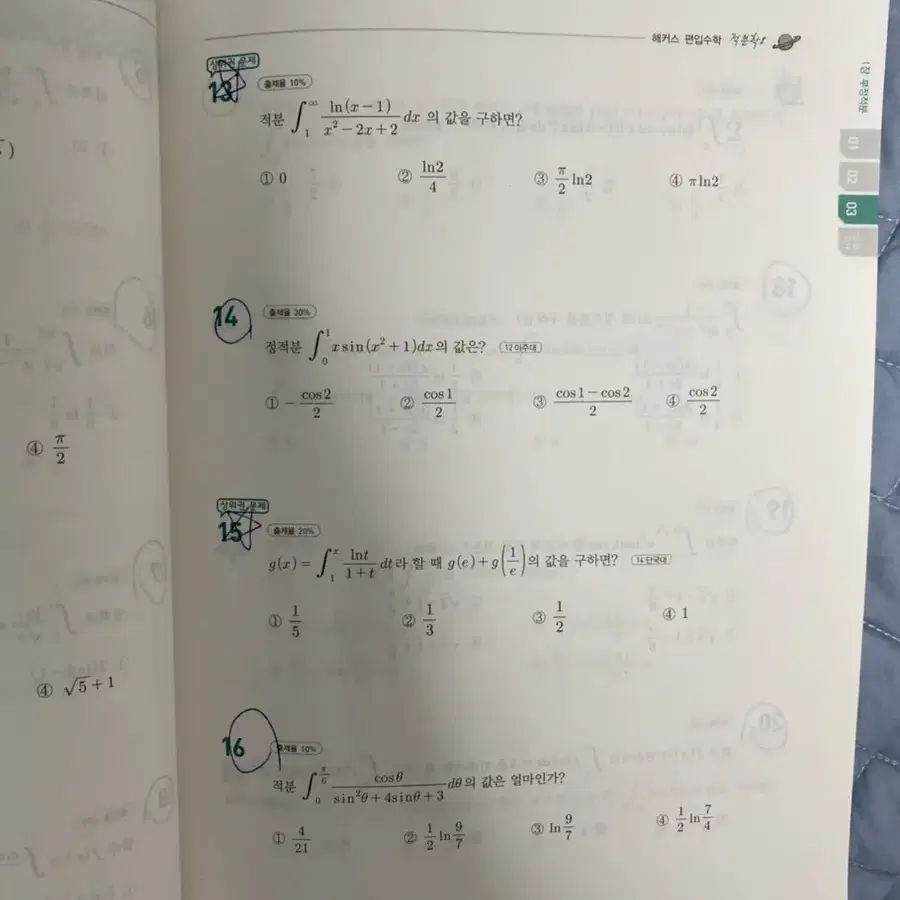 해커스 편입수학 적분학1
1장 부정적분
01
02
03
상위권 문제
13 출제율 10%
적분 ∫₁^∞ ln(x−1)/(x²−2x+2) dx 의 값을 구하면?
① 0 ② ln2/4 ③ π/2 ln2 ④ π ln2
14 출제율 30%
정적분 ∫₀¹ x sin(x²+1)dx의 값은? 12 아주대
① −cos2/2 ② cos1/2 ③ (cos1−cos2)/2 ④ cos2/2
④ π/2
상위권 문제
15 출제율 20%
g(x)=∫₁ˣ lnt/(1+t) dt라 할 때 g(e)+g(1/e)의 값을 구하면? 14 단국대
① 1/5 ② 1/3 ③ 1/2 ④ 1
④ √5+1
16 출제율 10%
적분 ∫₀^(π/6) cosθ/(sin²θ+4sinθ+3) dθ의 값은 얼마인가?
① 4/21 ② 1/2 ln 9/7 ③ ln 9/7 ④ 1/2 ln 7/4